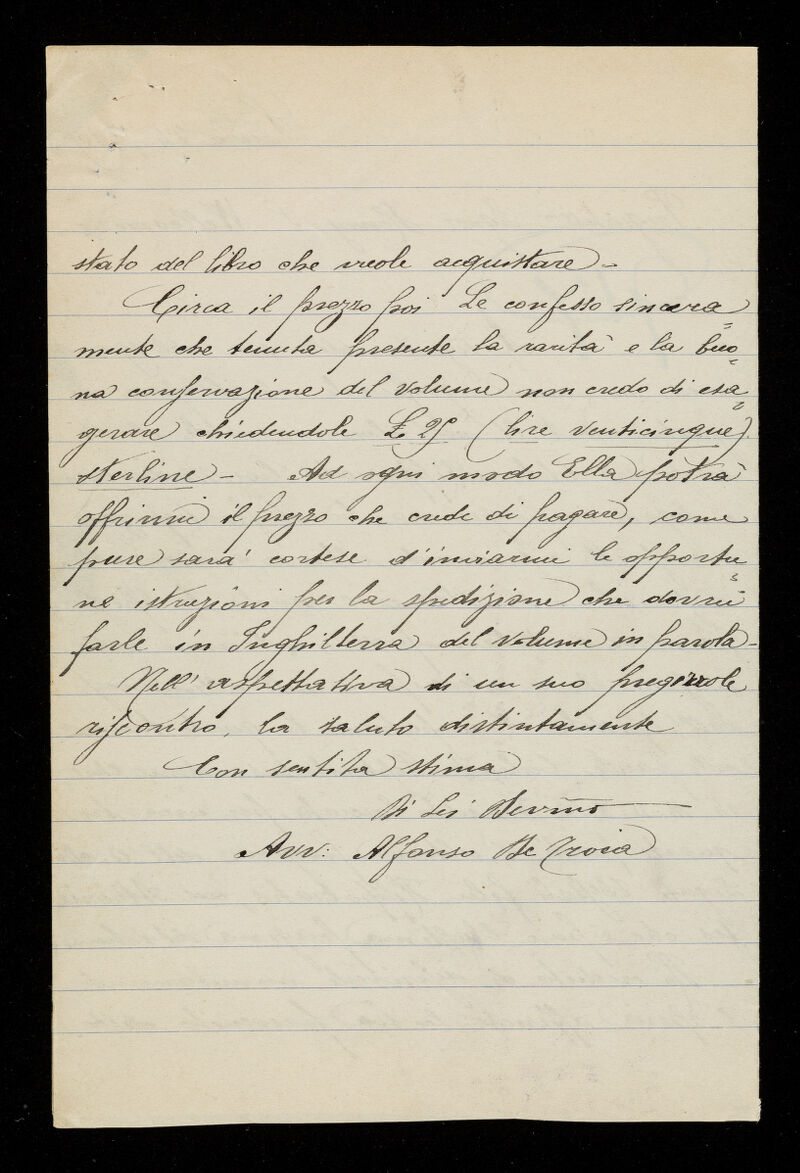 stato del libro che vuole acquistare -
Circa il prezzo poi Le confesso sincera=
mente che tenuta presente la rarità e la buo=
na conservazione del volume non credo di esa=
gerare chiedendole £ 25 (lire venticinque)
sterline - Ad ogni modo Ella potrà
offrirmi il prezzo che crede di pagare, come
pure sarà cortese d'inviarmi le opportu=
ne istruzioni per la spedizione che dovrei
farle in Inghilterra del volume in parola -
Nell'aspettativa di un suo pregevole
riscontro, la saluto distintamente
Con sentita stima
Di Lei Devmo
Avv: Alfonso De Troia